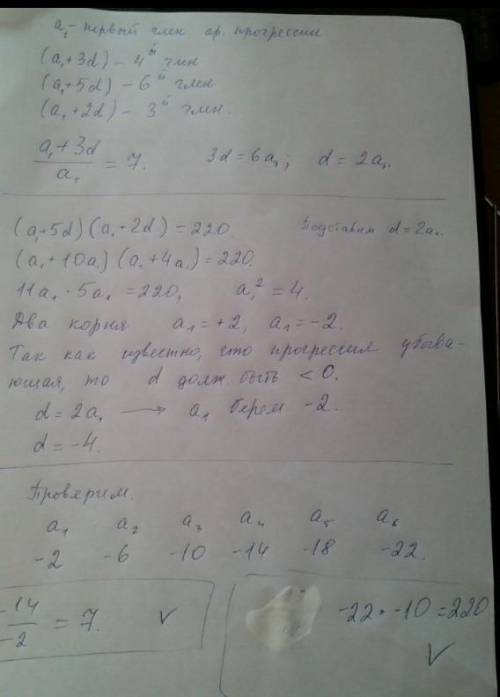 a₁ - первый член ар. прогрессии
(a₁+3d) - 4й член
(a₁+5d) - 6й член
(a₁+2d) - 3й член.
(a₁+3d)/a₁ = 7. 3d = 6a₁; d = 2a₁.
(a₁+5d)(a₁+2d) = 220. Подставим d = 2a₁.
(a₁+10a₁)(a₁+4a₁) = 220.
11a₁ · 5a₁ = 220, a₁² = 4.
Два корня a₁ = +2, a₁ = -2.
Так как известно, что прогрессия убыва-
ющая, то d долж. быть < 0.
d = 2a₁ → a₁ берем -2.
d = -4.
Проверим.
a₁ a₂ a₃ a₄ a₅ a₆
-2 -6 -10 -14 -18 -22.
-14/-2 = 7. ✓
-22 · -10 = 220 ✓